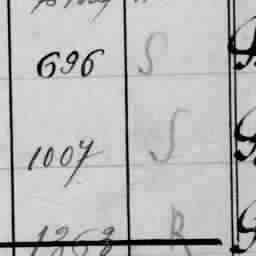 696 S
1007 S
1268 R